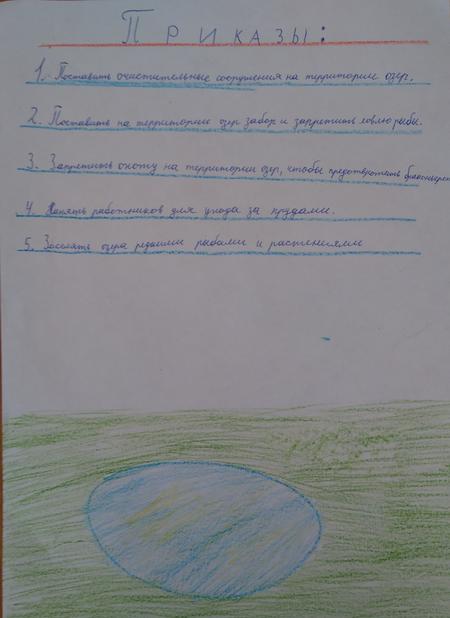 Приказы:
1. Поставить очистительные сооружения на территории озёр.
2. Поставить на территории озёр забор и запретить ловлю рыбы.
3. Запретить охоту на территории озёр, чтобы предотвратить
4. Нанять работников для ухода за прудами.
5. Заселять озёра редкими рыбами и растениями